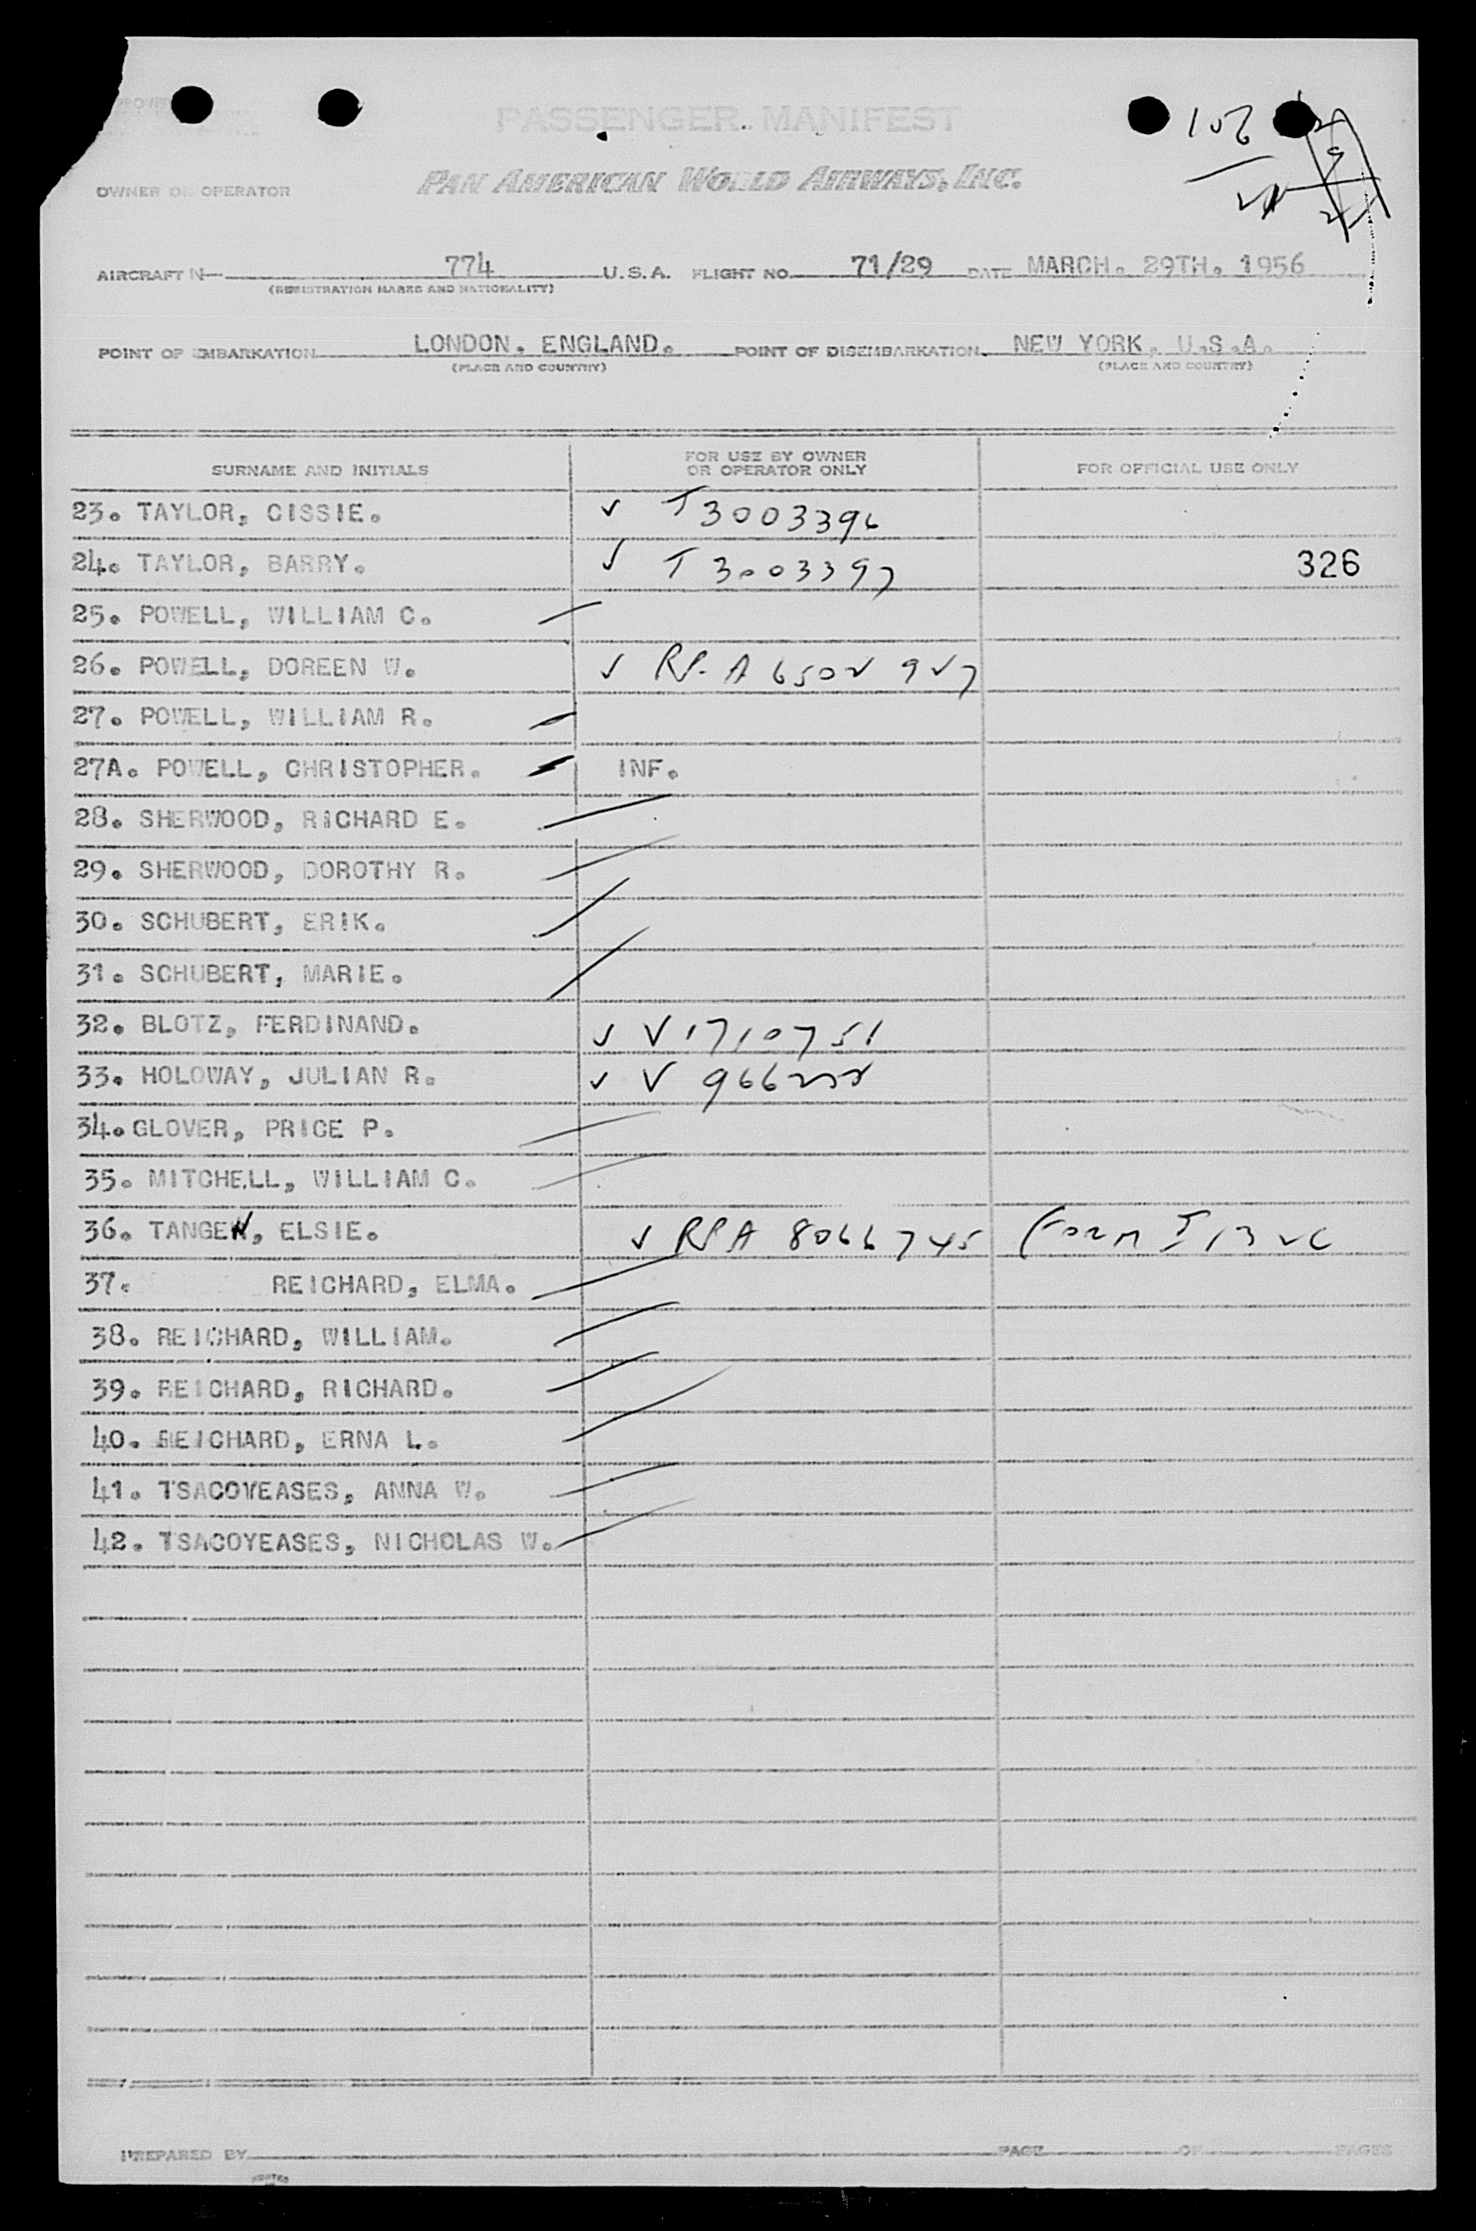 PASSENGER MANIFEST
OWNER OR OPERATOR PAN AMERICAN WORLD AIRWAYS, INC.
AIRCRAFT N 774 U.S.A. FLIGHT NO. 71/29 DATE MARCH. 29TH. 1956
(REGISTRATION MARKS AND NATIONALITY)
POINT OF EMBARKATION LONDON, ENGLAND. POINT OF DISEMBARKATION NEW YORK, U.S.A.
(PLACE AND COUNTRY) (PLACE AND COUNTRY)
SURNAME AND INITIALS FOR USE BY OWNER OR OPERATOR ONLY FOR OFFICIAL USE ONLY
23. TAYLOR, CISSIE. ✓ T3003396
24. TAYLOR, BARRY. ✓ T3003397 326
25. POWELL, WILLIAM C.
26. POWELL, DOREEN W. ✓ RP-A6502927
27. POWELL, WILLIAM R.
27A. POWELL, CHRISTOPHER. INF.
28. SHERWOOD, RICHARD E.
29. SHERWOOD, DOROTHY R.
30. SCHUBERT, ERIK.
31. SCHUBERT, MARIE.
32. BLOTZ, FERDINAND. ✓ V1710751
33. HOLOWAY, JULIAN R. ✓ V 966222
34. GLOVER, PRICE P.
35. MITCHELL, WILLIAM C.
36. TANGEN, ELSIE. ✓ RPA 8066745 (Form I 132C
37. REICHARD, ELMA.
38. REICHARD, WILLIAM.
39. REICHARD, RICHARD.
40. REICHARD, ERNA L.
41. TSACOYEASES, ANNA W.
42. TSACOYEASES, NICHOLAS W.
PREPARED BY PAGE OF PAGES